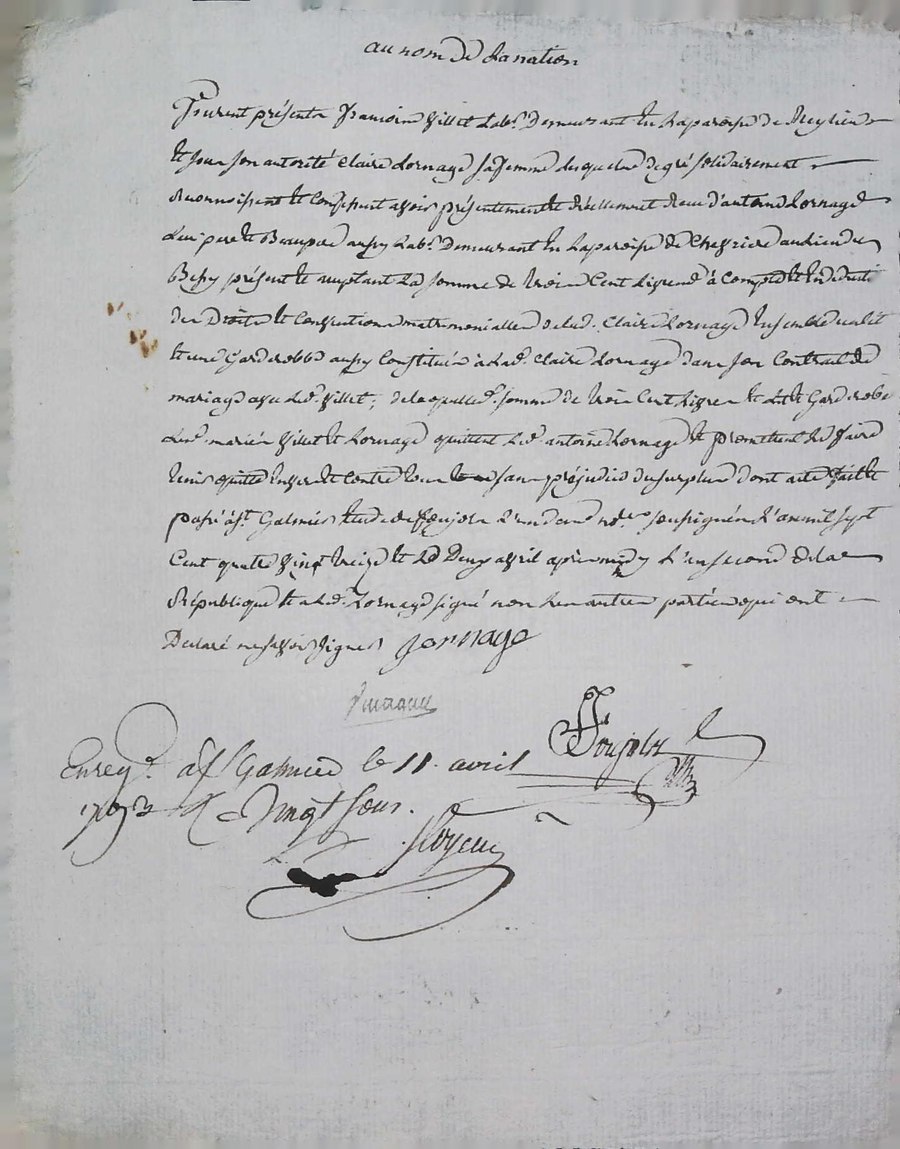 au nom de la nation
furent présents françois villet Lab.r Demeurant En Laparoisse de Meylieu
Et sous son autorité claire Lornage sa femme lesquels de gré solidairement
Reconnoissent Et Confessent avoir présentement Et réellement Receu d'antoine Lornage
Leur pere Et Beaupere aussy Lab.r Demeurant En Laparoisse de Chevrieres audieu
présent Et acceptant La somme de trois Cent Livres à Compte Et En déduction
Des Droits Et Conventions matrimonialles de lad. Claire Lornage Ensemble un lit
Et une Garderobbe aussy Constitués à Lad. Claire Lornage dans son Contrat de
mariage avec Led. villet, de laquelle d. somme de trois Cent Livres Et lit Et Garderobe
Lesd. mariés villet Et Lornage quittent Led. antoine Lornage Et promettent Le faire
tenir quitte Envers Et Contre tous sans préjudice du surplus dont acte fait Et
passé à s.t Galmier Etude de foujols L'un des no.res soussignés L'an mil sept
Cent quatre vingt treize Et Le Deux avril après midy L'an second de la
République Et a Led. Lornage signé non Les autres parties qui ont
Declaré ne savoir signer jornage
foujols
Enreg.é à s.t Galmier le 11 avril
1793 R vingt sous.